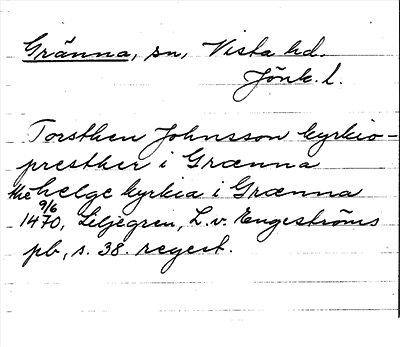 Gränna, sn, Vista hd.
Jönk. l.
Torsthen Johnsson kyrkio-
presther i Grænna
the helge kyrkia i Grænna
9/6
1470, Liljegren, L. v. Engeströms
pb, s. 38. regest.